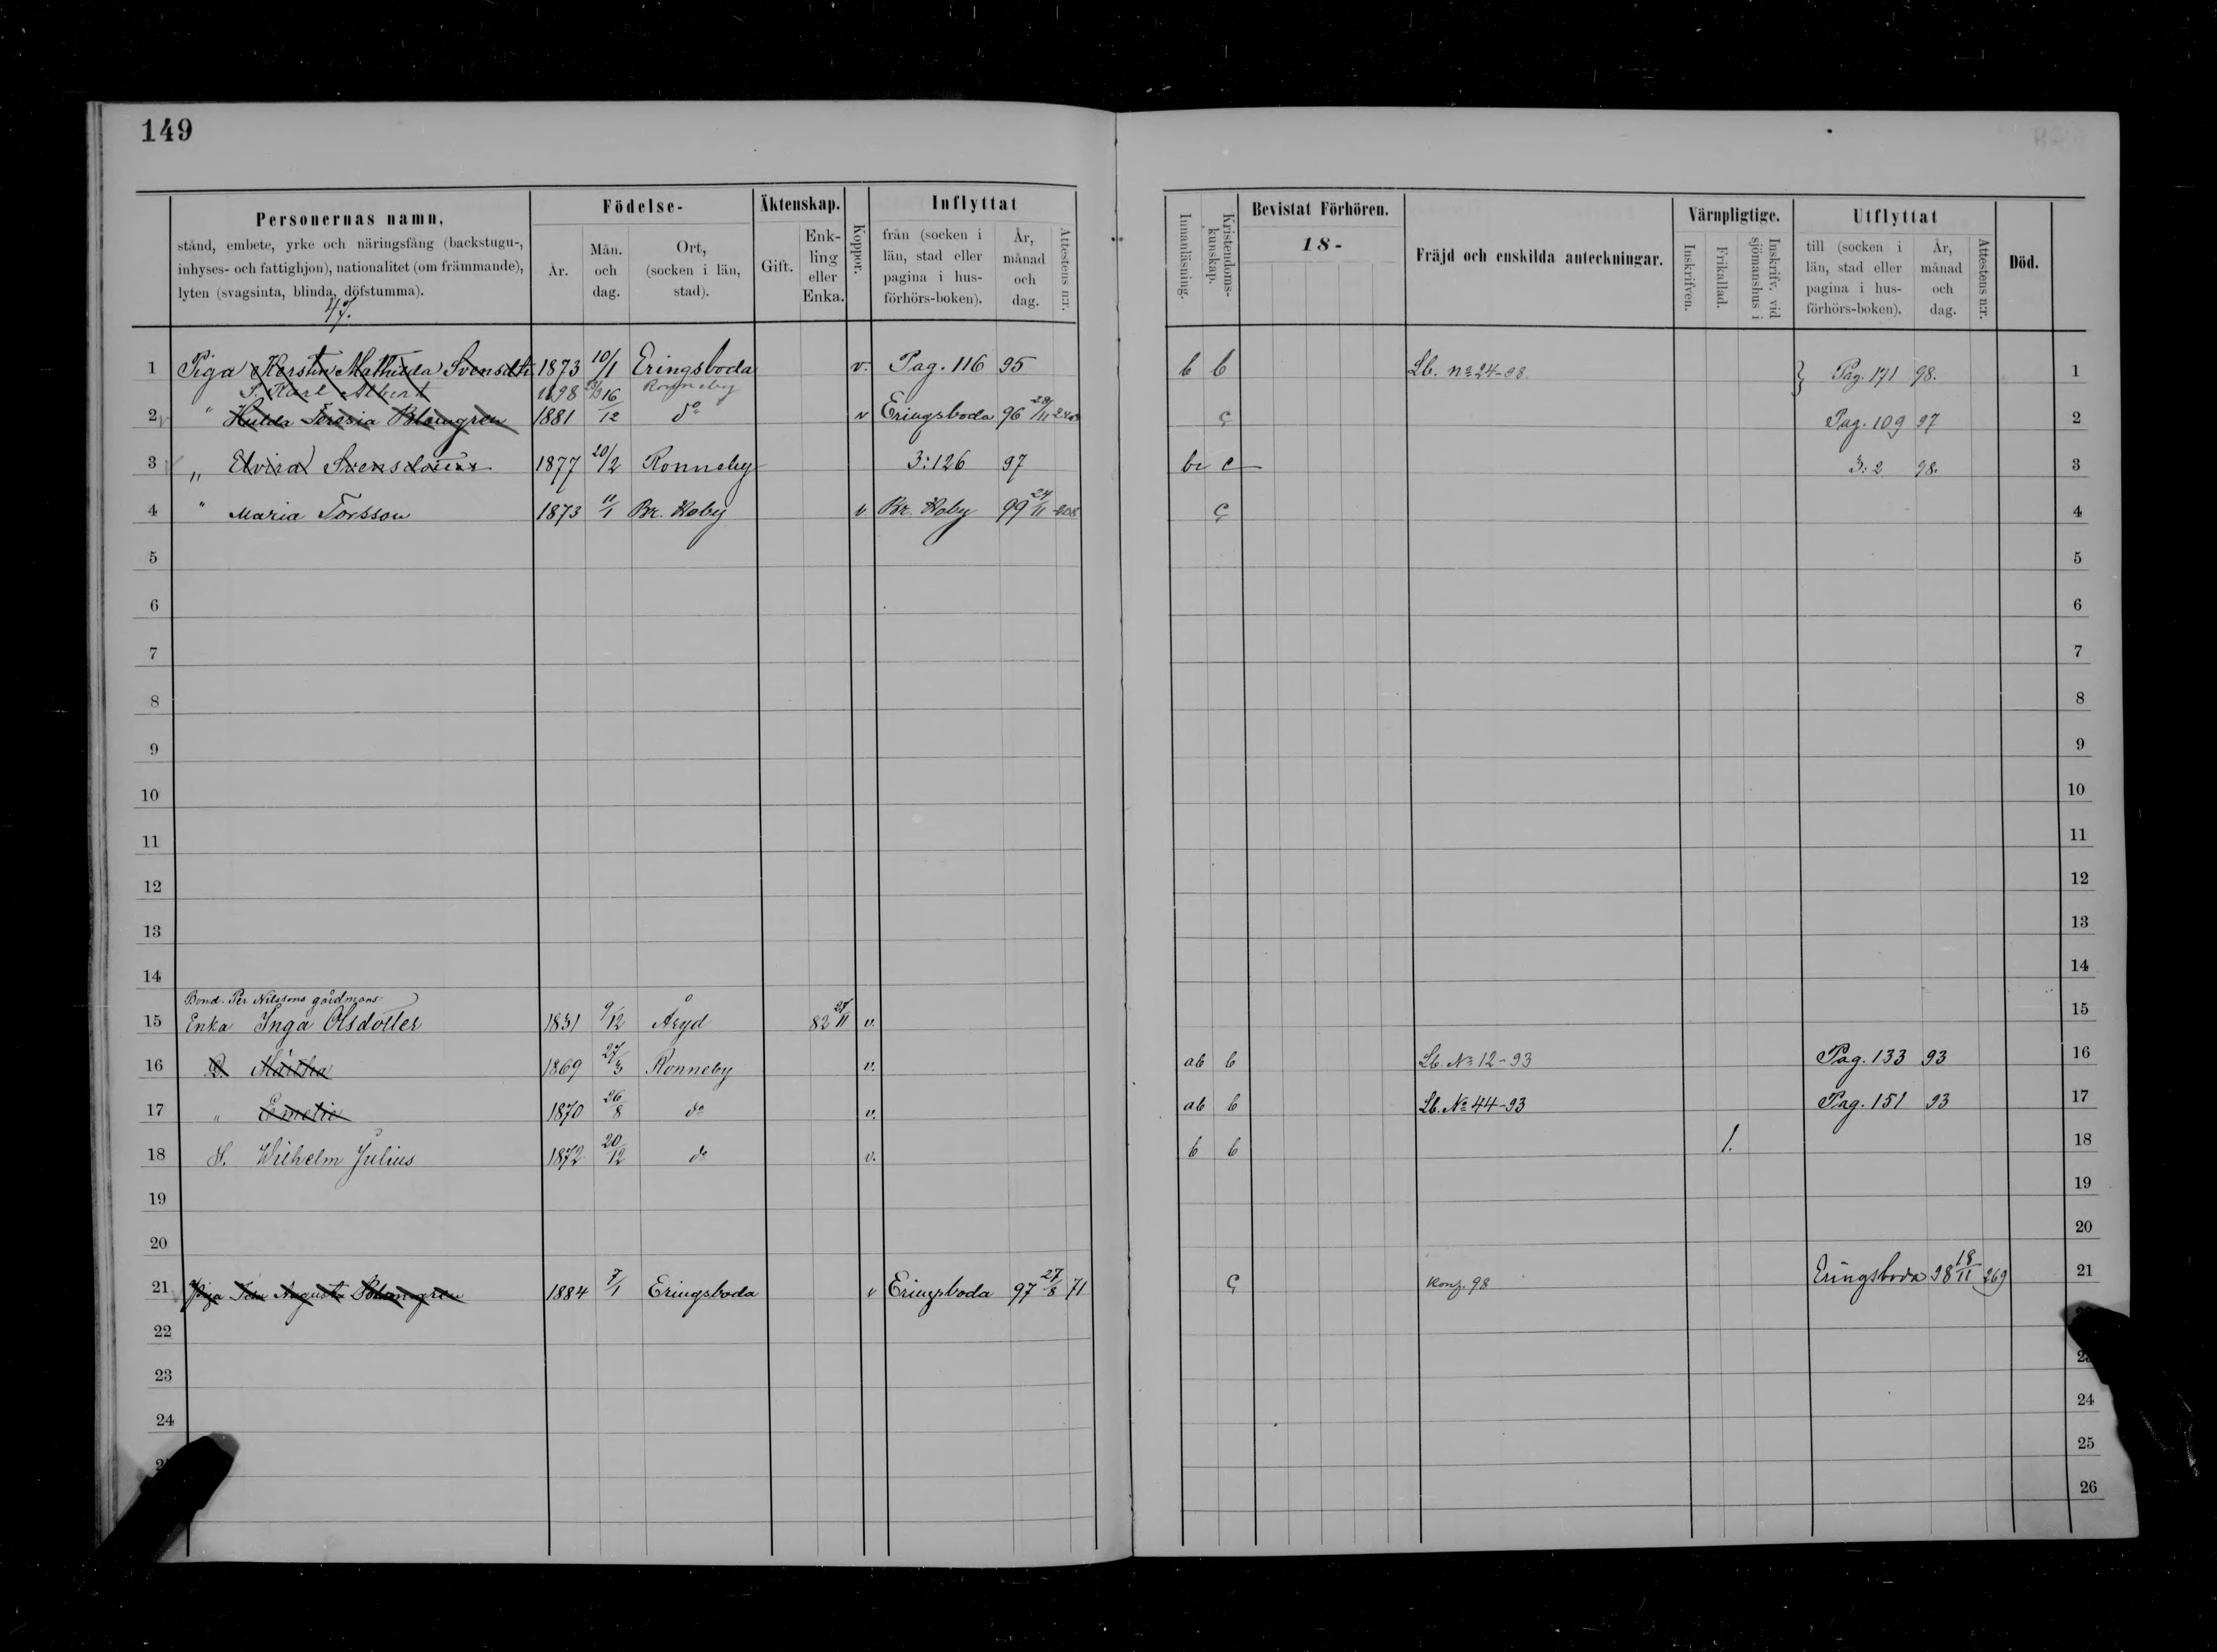 149
Personernas namn,
stånd, embete, yrke och näringsfång (backstugu-,
inhyses- och fattighjon), nationalitet (om främmande),
lyten (svagsinta, blinda, döfstumma).
Födelse-
År.
Mån. och dag.
Ort, (socken i län, stad).
Äktenskap.
Gift.
Enk- ling eller Enka.
Koppor.
Inflyttat
från (socken i län, stad eller pagina i hus- förhörs-boken).
År, månad och dag.
Attestens n:r.
Innanläsning.
Kristendoms- kunskap.
Bevistat Förhören.
18-
Fräjd och enskilda anteckningar.
Värnpligtige.
Inskrifven.
Frikallad.
Inskrifv. vid sjömanshus i
Utflyttat
till (socken i län, stad eller pagina i hus- förhörs-boken).
År, månad och dag.
Attestens n:r.
Död.
1 Piga Kerstin Mathilda Svensdtr 1873 10/1 Eringsboda v. Pag. 116 95 b b Lb. no 24-98 } Pag. 171 98. 1
S. Karl Albert 1898 Ronneby
2 " Hulda Teresia Blomgren 1881 16/12 do v Eringsboda 96 28/11 Pag. 109 97 2
3 " Elvira Svensdotter 1877 20/2 Ronneby 3:126 97 3:2 98. 3
4 " Maria Torsson 1873 11/1 Br. Hoby v Br. Hoby 99 24/11 4
5 5
6 6
7 7
8 8
9 9
10 10
11 11
12 12
13 13
14 14
Bond. Per Nilssons gårdmans
15 Enka Inga Olsdotter 1831 9/12 Åryd 82 27/11 v. 15
16 D. Märtha 1869 27/3 Ronneby v. ab b Lb. No 12-93 Pag. 133 93 16
17 " Emelie 1870 26/8 do v. ab b Lb. No 44-93 Pag. 151 93 17
18 S. Wilhelm Julius 1872 20/12 do v. b b 1. 18
19 19
20 20
21 Piga Augusta Blomgren 1884 7/1 Eringsboda v Eringsboda 97 27/8 71 konf. 98 Eringsboda 98 18/11 269 21
22
23
24 24
25
26